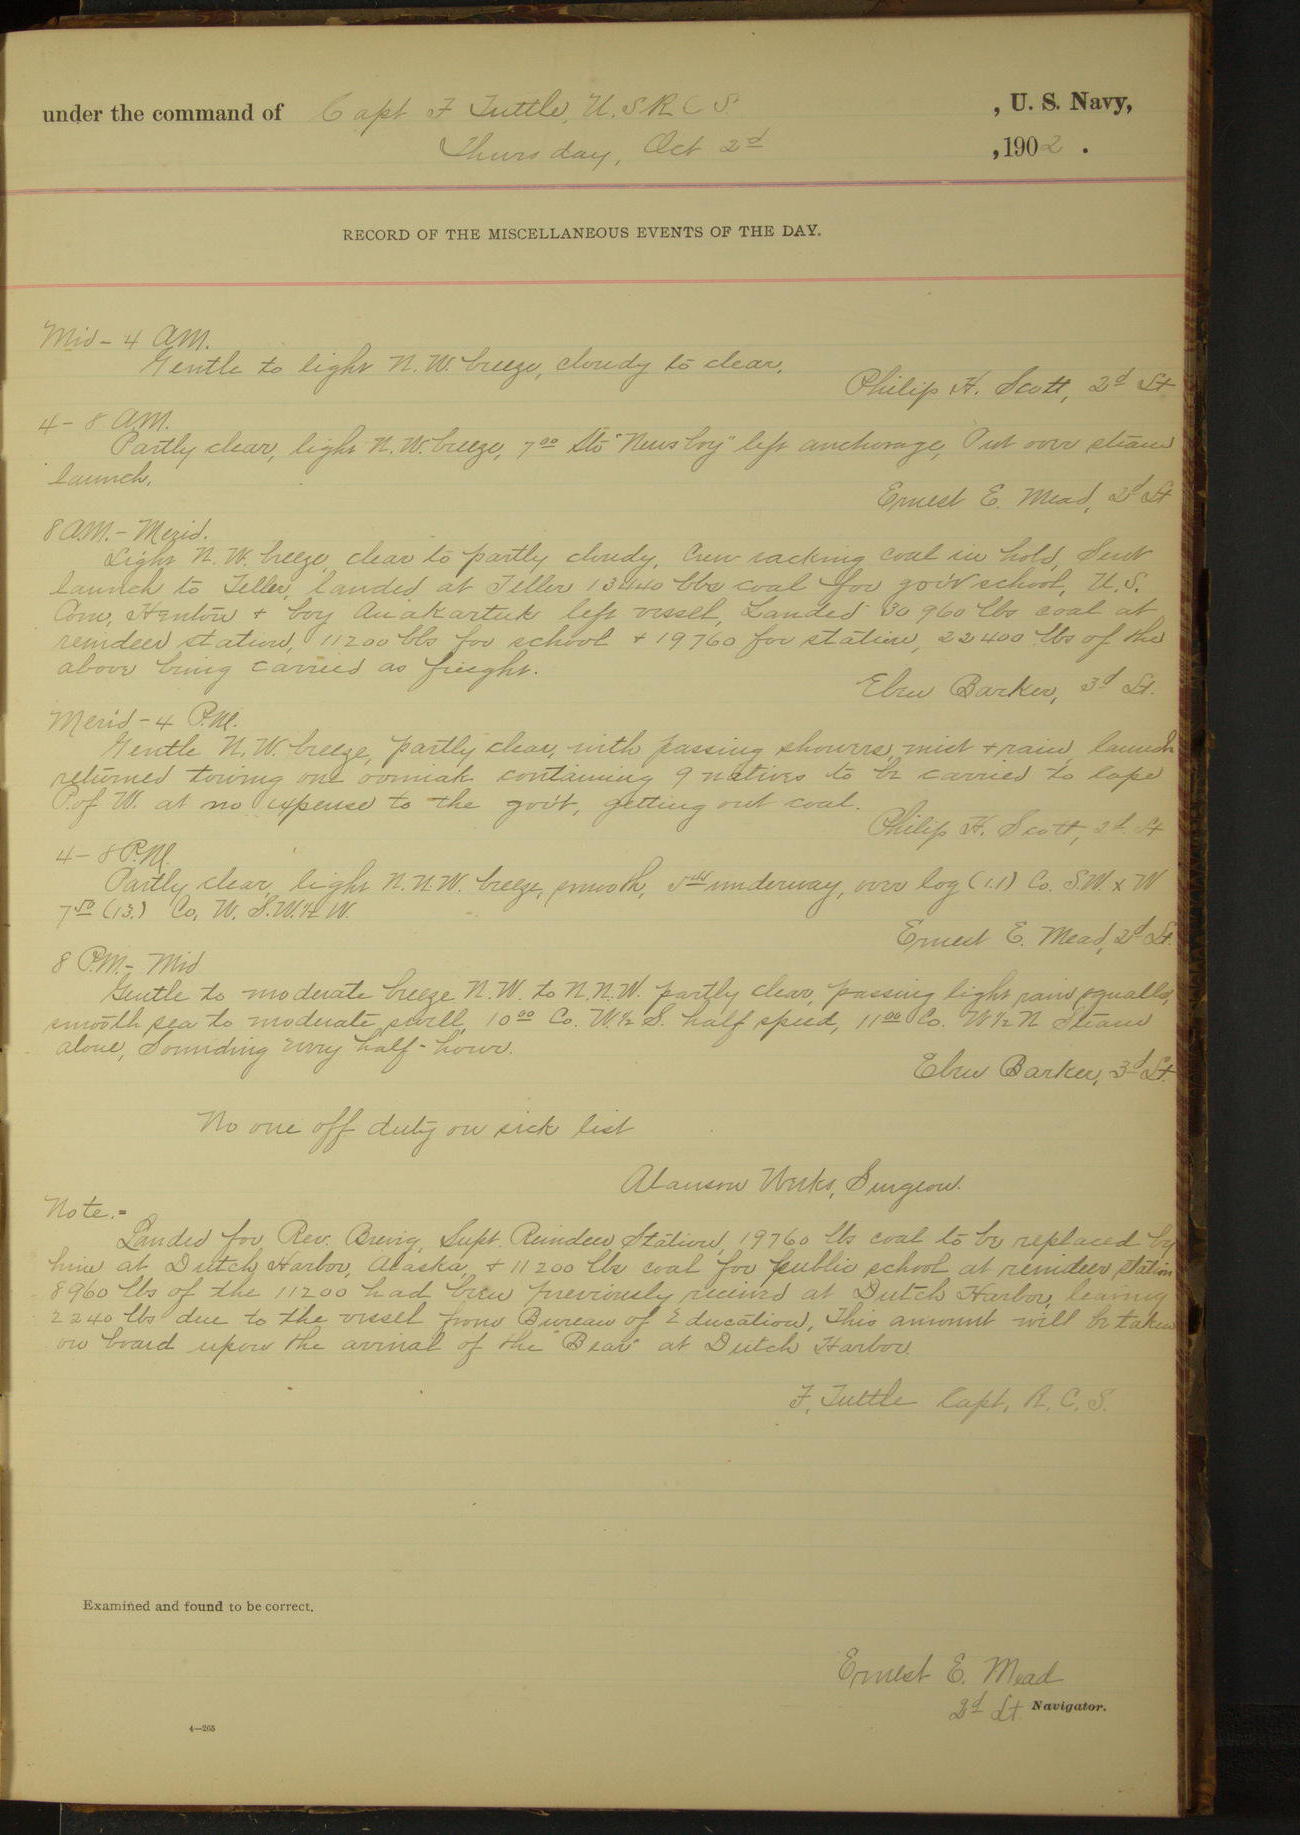 under the command of Capt F Tuttle, U.S.R.C.S. , U. S. Navy,
Thursday, Oct 2d , 1902 .
RECORD OF THE MISCELLANEOUS EVENTS OF THE DAY.
Mid - 4 A.M.
Gentle to light N.W. breeze, cloudy to clear.
Philip H. Scott, 2d Lt
4 - 8 A.M.
Partly clear, light N.W. breeze, 7 00 Str "Newsboy" left anchorage, Put over steam
launch.
Ernest E. Mead, 2d Lt
8 A.M. - Merid.
Light N.W. breeze, clear to partly cloudy, Crew sacking coal in hold, Sent
launch to Teller, landed at Teller 13440 lbs coal for gov't school, U.S.
Com, + boy left vessel, Landed 30960 lbs coal at
reindeer station, 11200 lbs for school + 19760 for station, 22400 lbs of the
above being carried as freight.
Eben Barker, 3d Lt.
Merid - 4 P.M.
Gentle N.W. breeze, partly clear, with passing showers, mist + rain, launch
returned towing one oomiak containing 9 natives to be carried to Cape
P. of W. at no expense to the gov't, getting out coal.
Philip H. Scott, 2d. Lt
4 - 8 P.M.
Partly clear, light N.N.W. breeze, smooth, underway, over log (1.1) Co. S.W. x W
7 50 (13.) Co, W. S.W. 1/2 W.
Ernest E. Mead, 2d Lt.
8 P.M. - Mid
Gentle to moderate breeze N.W. to N.N.W. partly clear, passing light rain squalls,
smooth sea to moderate swell, 10 00 Co. W. 1/2 S. half speed, 11 00 Co. W 1/2 N Steam
alone, Sounding every half-hour.
Eben Barker, 3d Lt.
No one off duty on sick list
Alanson Weeks, Surgeon.
Note.-
Landed for Rev. Brevig, Supt. Reindeer Station, 19760 lbs coal to be replaced by
him at Dutch Harbor, Alaska, + 11200 lbs coal for public school at reindeer station
8960 lbs of the 11200 had been previously received at Dutch Harbor, leaving
2240 lbs due to the vessel from Bureau of Education, This amount will be taken
on board upon the arrival of the "Bear" at Dutch Harbor.
F. Tuttle Capt, R. C. S.
Examined and found to be correct.
Ernest E. Mead
2d Lt. Navigator.
4—265